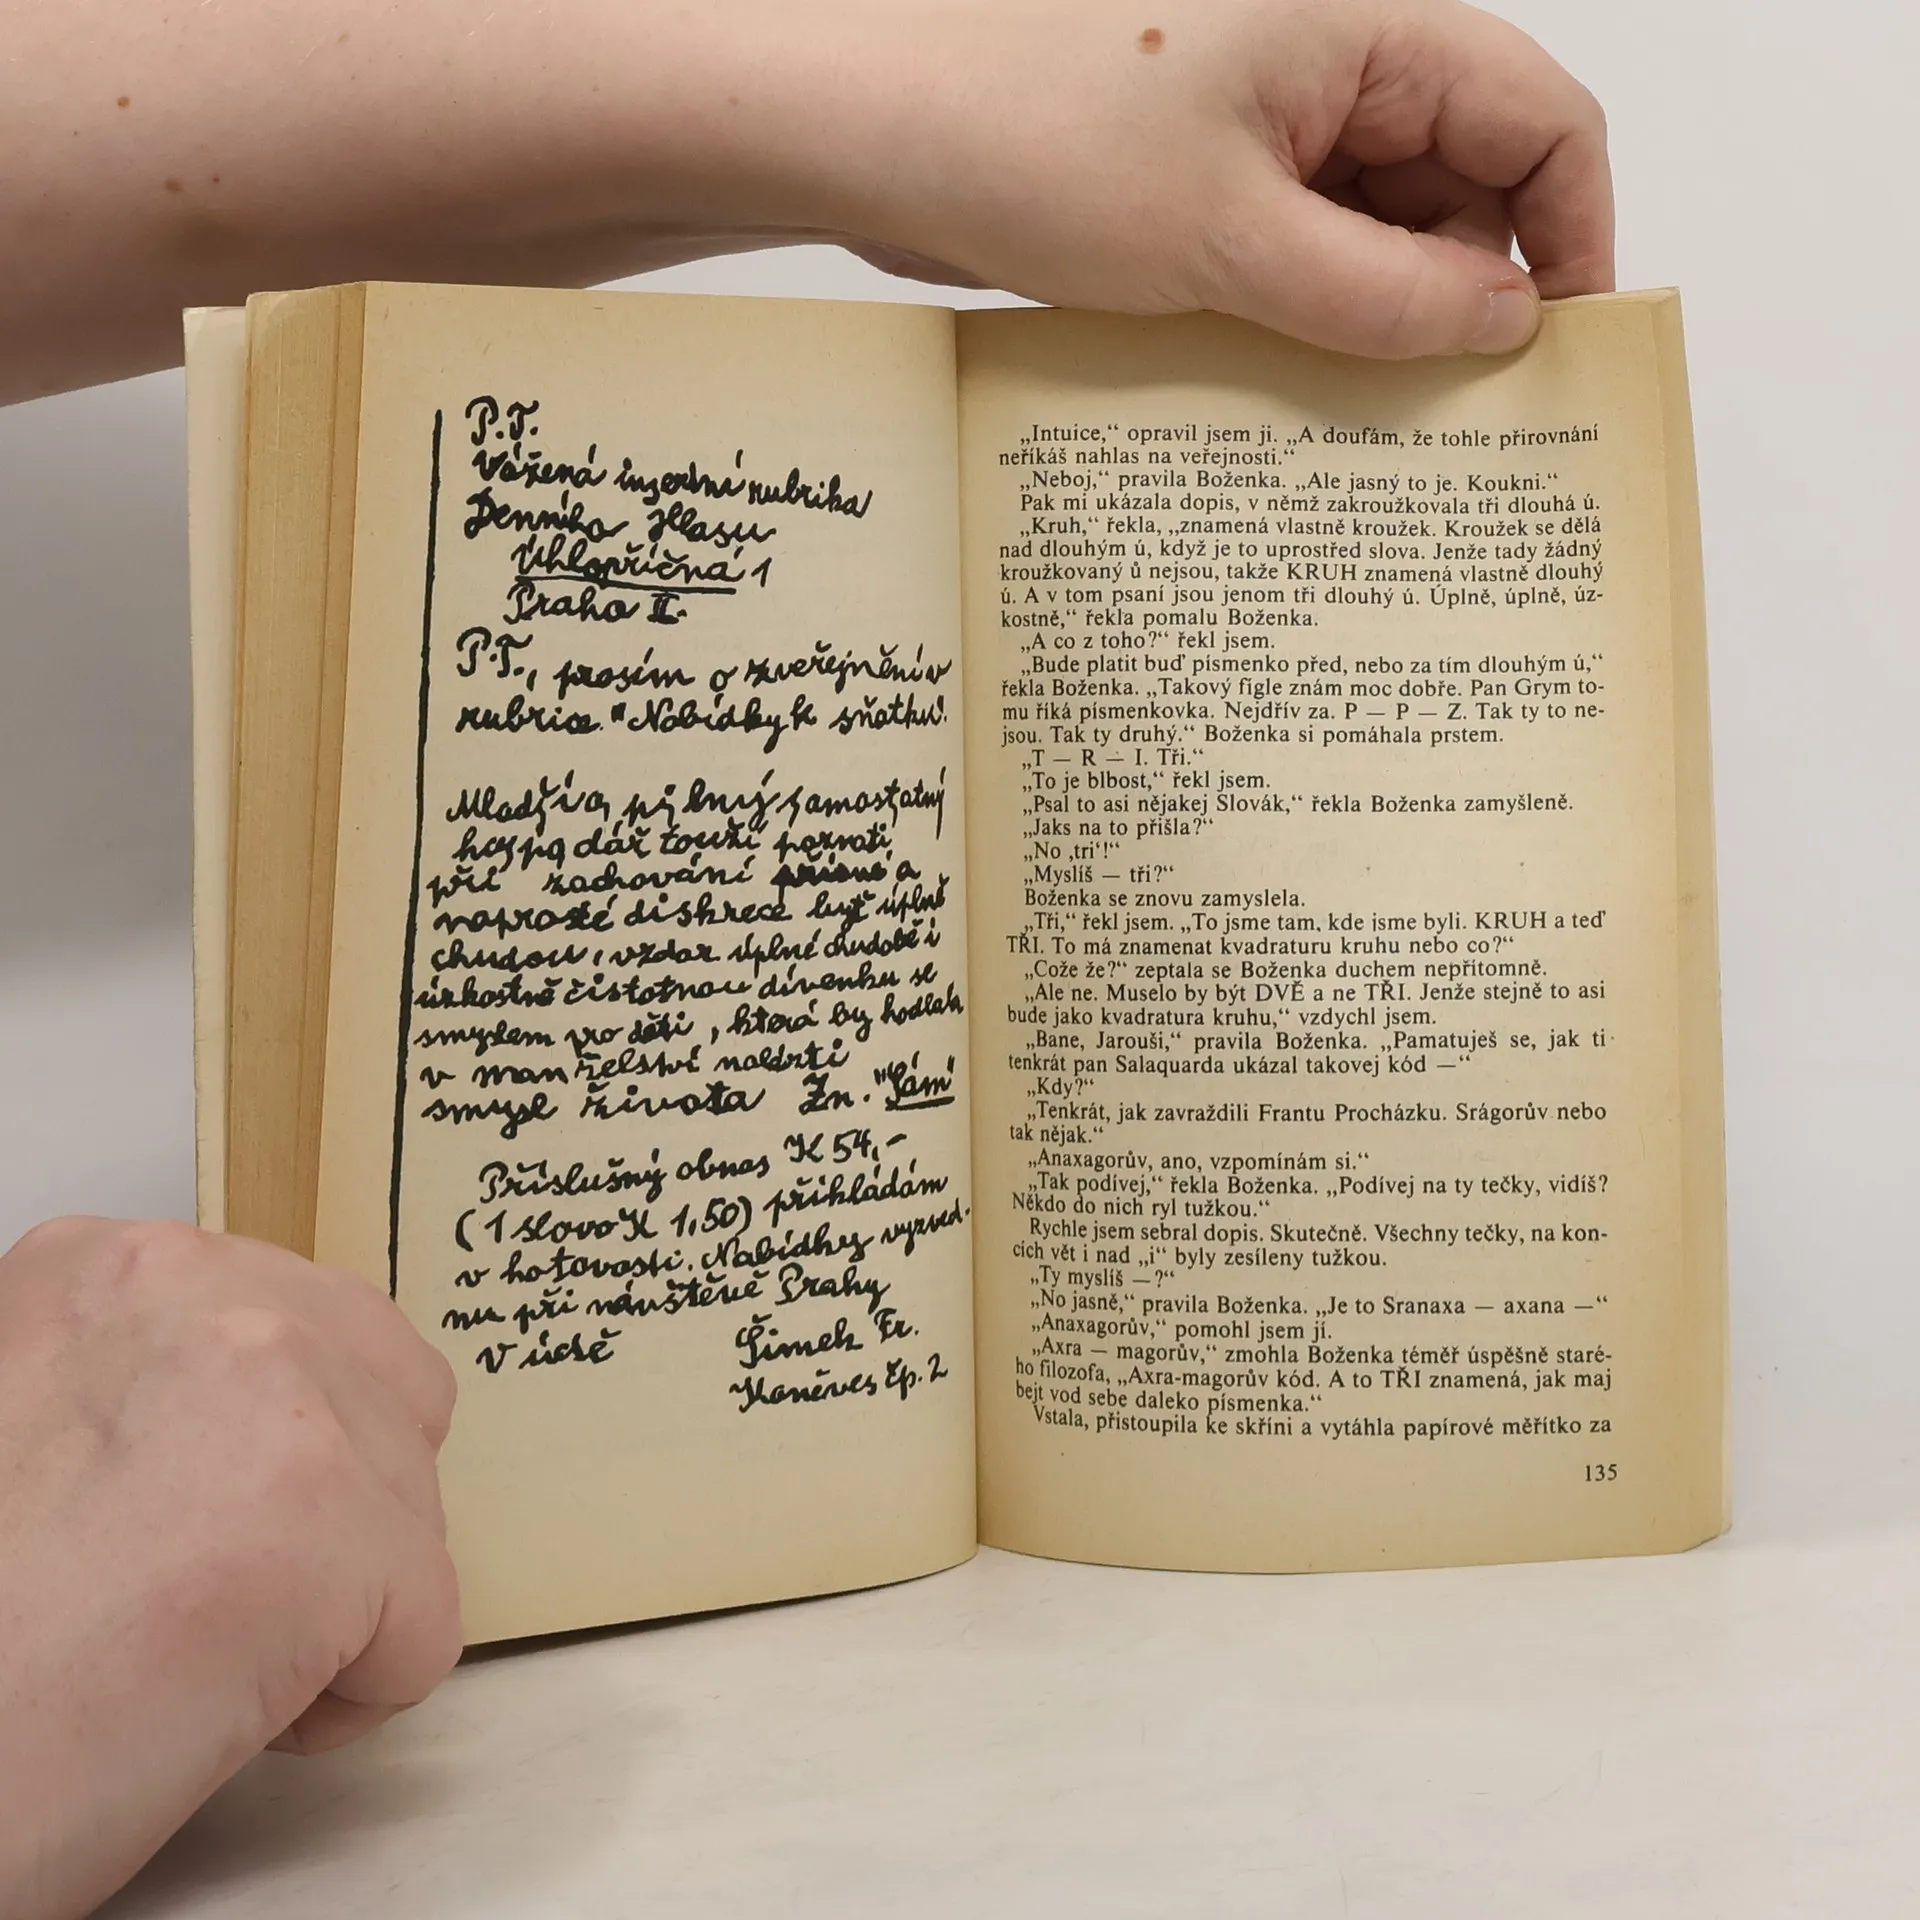 P.T.
Vážená inzertní rubrika
Denního Hlasu
Úhlopříčná 1
Praha II.
P.T., prosím o zveřejnění v
rubrice "Nabídky k sňatku".
Mladší a pilný samostatný
hospodář touží poznati
při zachování přísné a
naprosté diskrece byť úplně
chudou, vzdor úplné chudobě i
úzkostně čistotnou dívenku se
smyslem pro děti, která by hodlala
v manželství nalézti
smysl života Zn. "Sám"
Příslušný obnos K 54,-
(1 slovo K 1,50) přikládám
v hotovosti. Nabídky vyzved-
nu při návštěvě Prahy
V úctě Šimek Fr.
čp. 2
„Intuice,“ opravil jsem ji. „A doufám, že tohle přirovnání
neříkáš nahlas na veřejnosti.“
„Neboj,“ pravila Boženka. „Ale jasný to je. Koukni.“
Pak mi ukázala dopis, v němž zakroužkovala tři dlouhá ú.
„Kruh,“ řekla, „znamená vlastně kroužek. Kroužek se dělá
nad dlouhým ú, když je to uprostřed slova. Jenže tady žádný
kroužkovaný ů nejsou, takže KRUH znamená vlastně dlouhý
ú. A v tom psaní jsou jenom tři dlouhý ú. Úplně, úplně, úz-
kostně,“ řekla pomalu Boženka.
„A co z toho?“ řekl jsem.
„Bude platit buď písmenko před, nebo za tím dlouhým ú,“
řekla Boženka. „Takový fígle znám moc dobře. Pan Grym to-
mu říká písmenkovka. Nejdřív za. P — P — Z. Tak ty to ne-
jsou. Tak ty druhý.“ Boženka si pomáhala prstem.
„T — R — I. Tři.“
„To je blbost,“ řekl jsem.
„Psal to asi nějakej Slovák,“ řekla Boženka zamyšleně.
„Jaks na to přišla?“
„No ‚tri‘!“
„Myslíš — tři?“
Boženka se znovu zamyslela.
„Tři,“ řekl jsem. „To jsme tam, kde jsme byli. KRUH a teď
TŘI. To má znamenat kvadraturu kruhu nebo co?“
„Cože že?“ zeptala se Boženka duchem nepřítomně.
„Ale ne. Muselo by být DVĚ a ne TŘI. Jenže stejně to asi
bude jako kvadratura kruhu,“ vzdychl jsem.
„Bane, Jarouši,“ pravila Boženka. „Pamatuješ se, jak ti
tenkrát pan Salaquarda ukázal takovej kód —“
„Kdy?“
„Tenkrát, jak zavraždili Frantu Procházku. Srágorův nebo
tak nějak.“
„Anaxagorův, ano, vzpomínám si.“
„Tak podívej,“ řekla Boženka. „Podívej na ty tečky, vidíš?
Někdo do nich ryl tužkou.“
Rychle jsem sebral dopis. Skutečně. Všechny tečky, na kon-
cích vět i nad „i“ byly zesíleny tužkou.
„Ty myslíš —?“
„No jasně,“ pravila Boženka. „Je to Sranaxa — axana —“
„Anaxagorův,“ pomohl jsem jí.
„Axra — magorův,“ zmohla Boženka téměř úspěšně staré-
ho filozofa, „Axra-magorův kód. A to TŘI znamená, jak maj
bejt vod sebe daleko písmenka.“
Vstala, přistoupila ke skříni a vytáhla papírové měřítko za
135